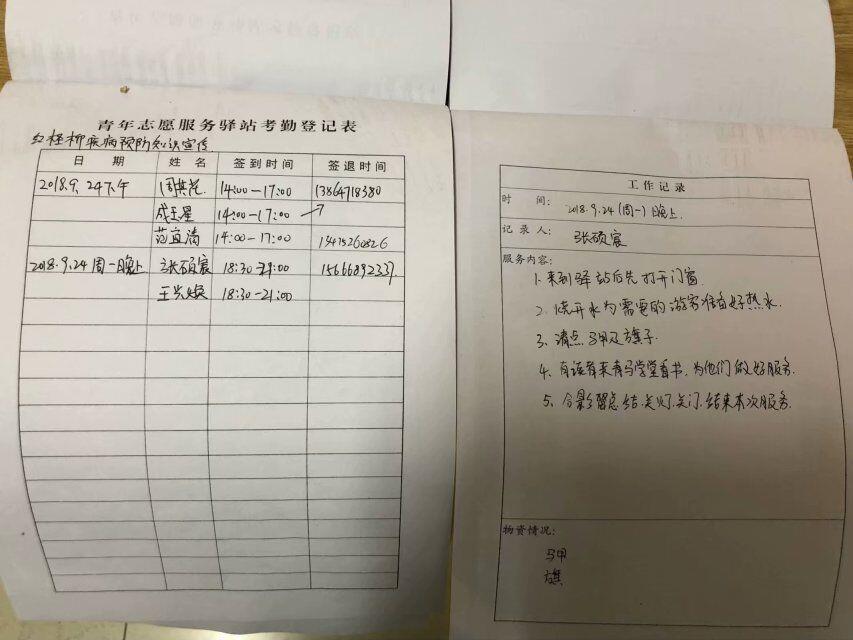 青年志愿服务驿站考勤登记表
红柽柳疾病预防知识宣传
日 期 姓 名 签到时间 签退时间
2018.9.24下午 14:00-17:00 13864718380
成玉星 14:00-17:00
范宜清 14:00-17:00
2018.9.24周一晚上 张硕宸 18:30-21:00 15666892337
18:30-21:00
工作记录
时 间: 2018.9.24(周一)晚上
记录人: 张硕宸
服务内容:
1.来到驿站后先打开门窗
2.烧开水为需要的游客准备好热水.
3、清点马甲及旗子.
4、有读者来青马学堂看书,为他们做好服务.
5、合影留念总结.关灯.关门.结束本次服务.
物资情况:
马甲
旗